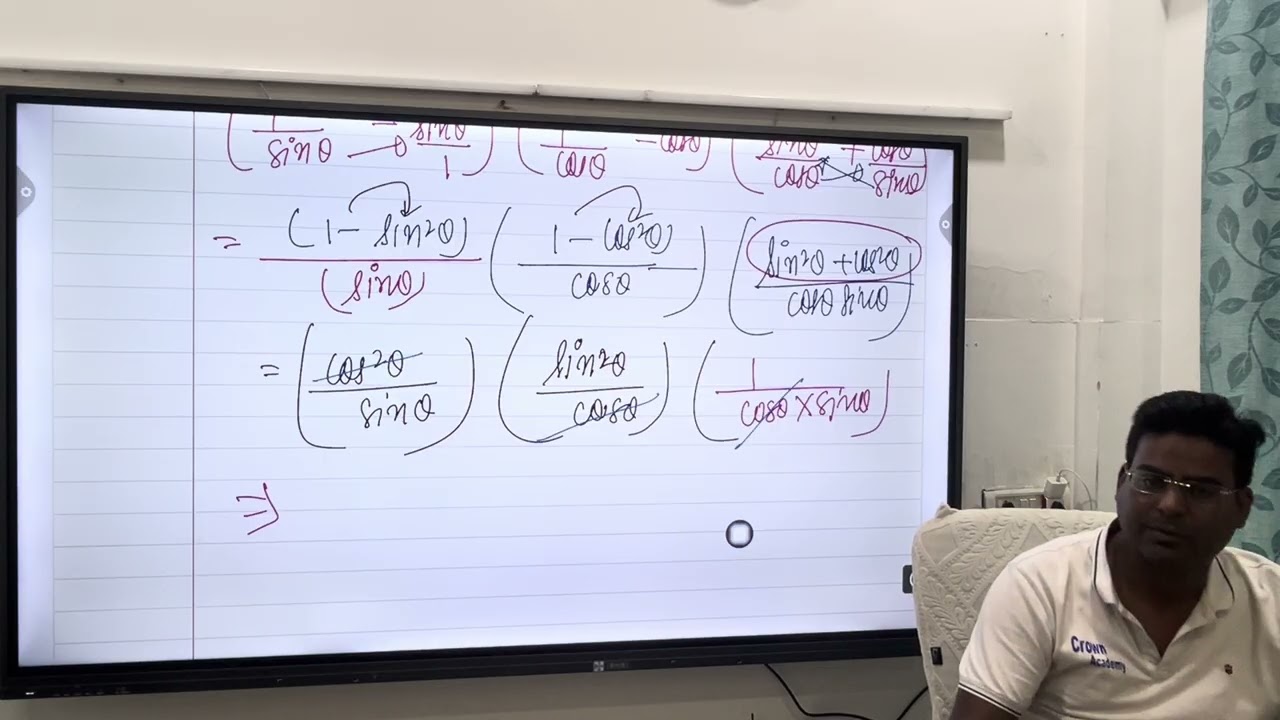 (1/sinθ - sinθ/1) (1/cosθ - cosθ) (sinθ/cosθ + cosθ/sinθ)
= (1 - sin²θ)/(sinθ) (1 - cos²θ/cosθ) (sin²θ + cos²θ/cosθ sinθ)
= (cos²θ/sinθ) (sin²θ/cosθ) (1/cosθ × sinθ)
⇒
Crown
Academy